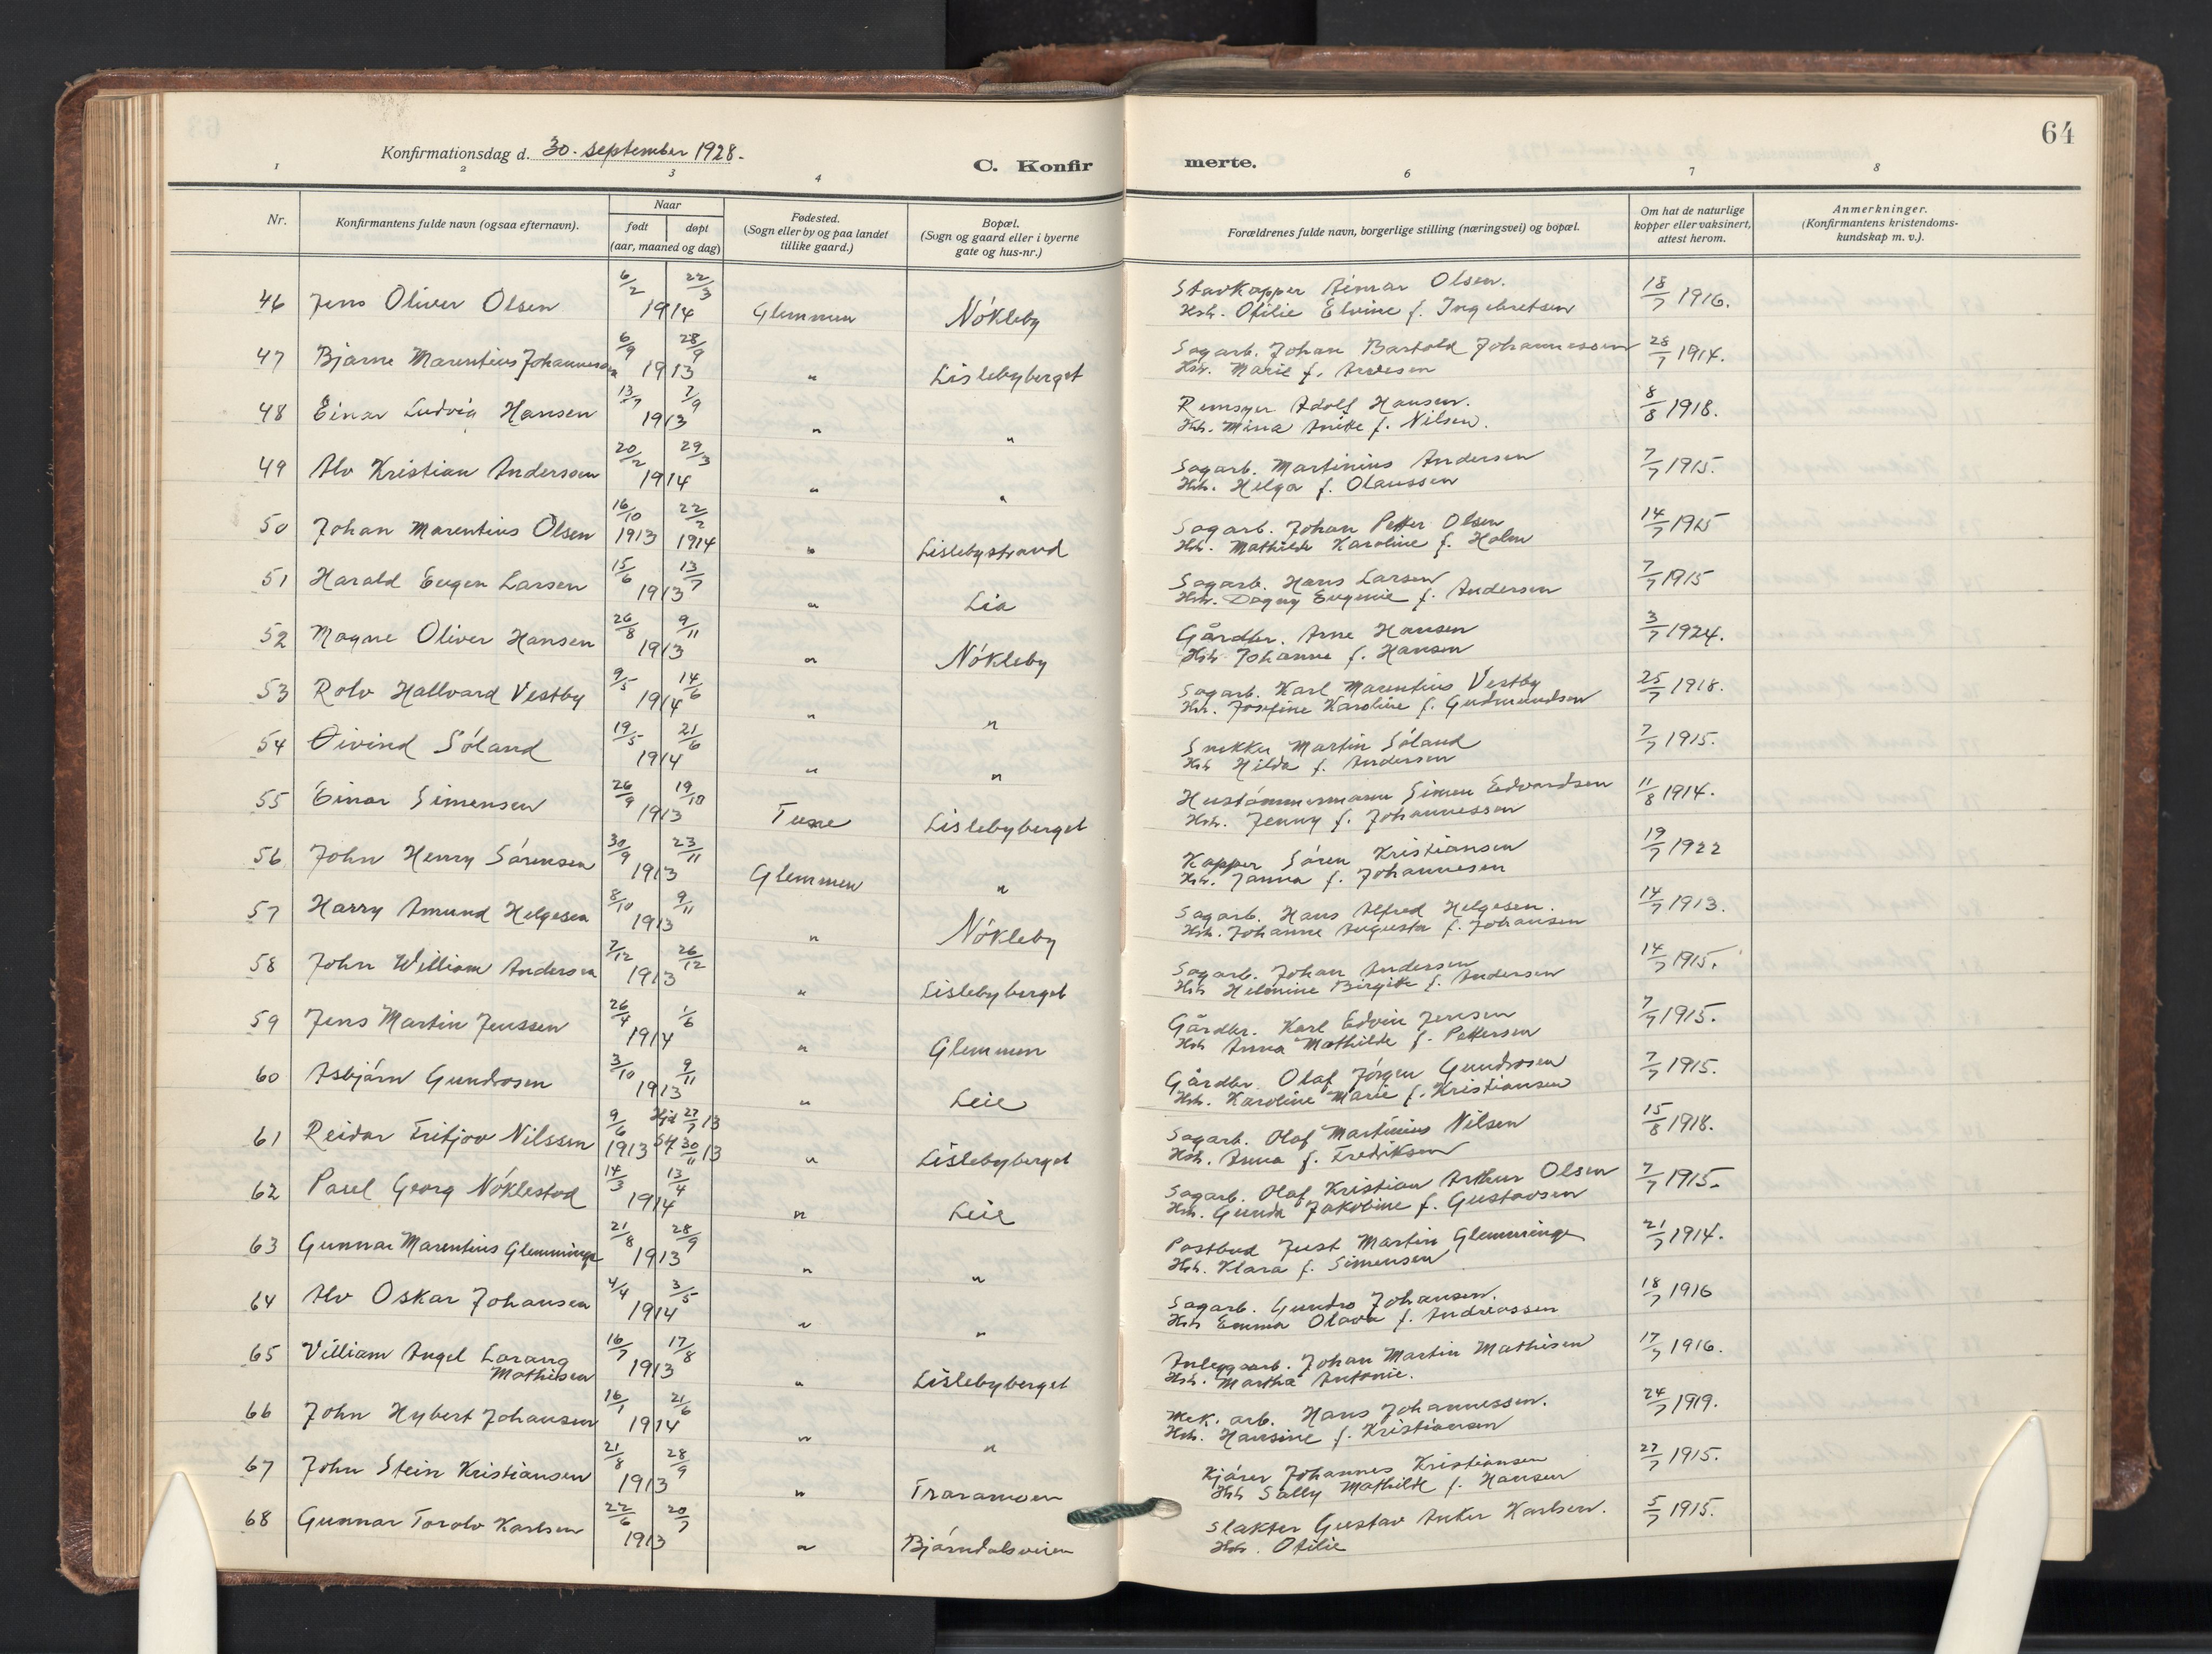 64
Konfirmationsdag d. 30. september 1928.
C. Konfir merte.
1 2 3 4 6 7 8
Nr.
Konfirmantens fulde navn (ogsaa efternavn).
Naar
født døpt
(aar, maaned og dag)
Fødested.
(Sogn eller by og paa landet
tillike gaard.)
Bopæl.
(Sogn og gaard eller i byerne
gate og hus-nr.)
Forældrenes fulde navn, borgerlige stilling (næringsvei) og bopæl.
Om hat de naturlige
kopper eller vaksinert,
attest herom.
Anmerkninger.
(Konfirmantens kristendoms-
kundskap m. v.).
46 Jens Oliver Olsen 6/2 22/3 1914 Glemmen Nökleby
Stavkapper Aimar Olsen. 18/7 1916.
Hst. Otilie Elvine f. Ingebretsen
47 Bjarne Marentius Johannesen 6/9 28/9 1913 " Lislebyberget
Sagarb. Johan Bartold Johannessen 28/7 1914.
Hst. Marie f. Andesen
48 Einar Ludvig Hansen 13/7 7/9 1913 " "
Remsyer Adolf Hansen. 8/8 1918.
Hst. Mina Anitte f. Nilsen.
49 Alv Kristian Anderssen 20/2 29/3 1914 " "
Sagarb. Martinius Andersen 7/7 1915.
Hst. Helga f. Olaussen
50 Johan Marentius Olsen 16/10 1913 22/2 1914 " Lislebystrand
Sagarb. Johan Petter Olsen 14/7 1915
Hst. Mathilde Karoline f. Holm
51 Harald Eugen Larsen 15/6 13/7 1913 " Lia
Sagarb. Hans Larsen 7/7 1915
Hst. Dagny Eugenie f. Andersen
52 Magne Oliver Hansen 26/8 9/11 1913 " Nökleby
Gårdbr. Arne Hansen 3/7 1924.
Hst. Johanne f. Hansen
53 Rolv Hallvard Vestby 9/5 14/6 1914 " "
Sagarb. Karl Marentius Vestby 25/7 1918.
Hst. Josefine Karoline f. Gudmundsen
54 Øivind Söland 19/5 21/6 1914 " "
Snekker Martin Söland 7/7 1915.
Hst Hilda f. Andersen
55 Einar Simensen 26/9 19/10 1913 Tune Lislebyberget
Hustömmermann Simen Edvardsen 11/8 1914.
Hst. Jenny f. Johannessen
56 John Henry Sörensen 30/9 23/11 1913 Glemmen "
Kapper Sören Kristiansen 19/7 1922
Hst. Janna f. Johannesen
57 Harry Amund Helgesen 8/10 9/11 1913 " Nökleby
Sagarb. Hans Alfred Helgesen. 14/7 1913.
Hst. Johanne Augusta f. Johansen
58 John William Andersen 7/12 26/12 1913 " Lislebyberget
Sagarb. Johan Andersen 14/7 1915.
Hst Helmine Birgitte f. Andersen
59 Jens Martin Jenssen 26/4 1/6 1914 " Glemmen
Gårdbr. Karl Edvin Jensen 7/7 1915.
Hst Anna Mathilde f. Pettersen
60 Asbjörn Gundrosen 3/10 9/11 1913 " Leie
Gårdbr. Olaf Jörgen Gundrosen 7/7 1915.
Hst. Karoline Marie f. Kristiansen
61 Reidar Fritjov Nilssen 9/6 1913 Hjd 27/7 13 St 30/11 13 " Lislebyberget
Sagarb. Olaf Martinius Nilsen 15/8 1918.
Hst. Anna f. Fredriksen
62 Paul Georg Nöklestad 14/3 13/4 1914 " Leie
Sagarb. Olaf Kristian Arthur Olsen 7/7 1915.
Hst. Gunda Jakobine f. Gustavsen
63 Gunnar Marentius Glemminge 21/8 28/9 1913 " "
Postbud Just Martin Glemminge 21/7 1914.
Hst. Klara f. Simensen
64 Alv Oskar Johansen 4/4 3/5 1914 " "
Sagarb. Gundro Johansen. 18/7 1916
Hst Emma Olava f. Andreassen
65 Villiam Angel Larang 16/7 17/8 1913 " Lislebyberget
Mathisen
Anleggsarb. Johan Martin Mathisen 17/7 1916.
Hst. Martha Antonie.
66 John Hybert Johansen 16/1 21/6 1914 " "
Mek. arb. Hans Johannessen. 24/7 1919.
Hst. Hansine f. Kristiansen
67 John Stein Kristiansen 21/8 28/9 1913 " Traramoen
Kjörer Johannes Kristiansen 27/7 1915.
Hst Sally Mathilde f. Hansen
68 Gunnar Torolv Karlsen 22/6 20/7 1913 " Björndalsveien
Slakter Gustav Anker Karlsen. 5/7 1915.
Hst. Otilie